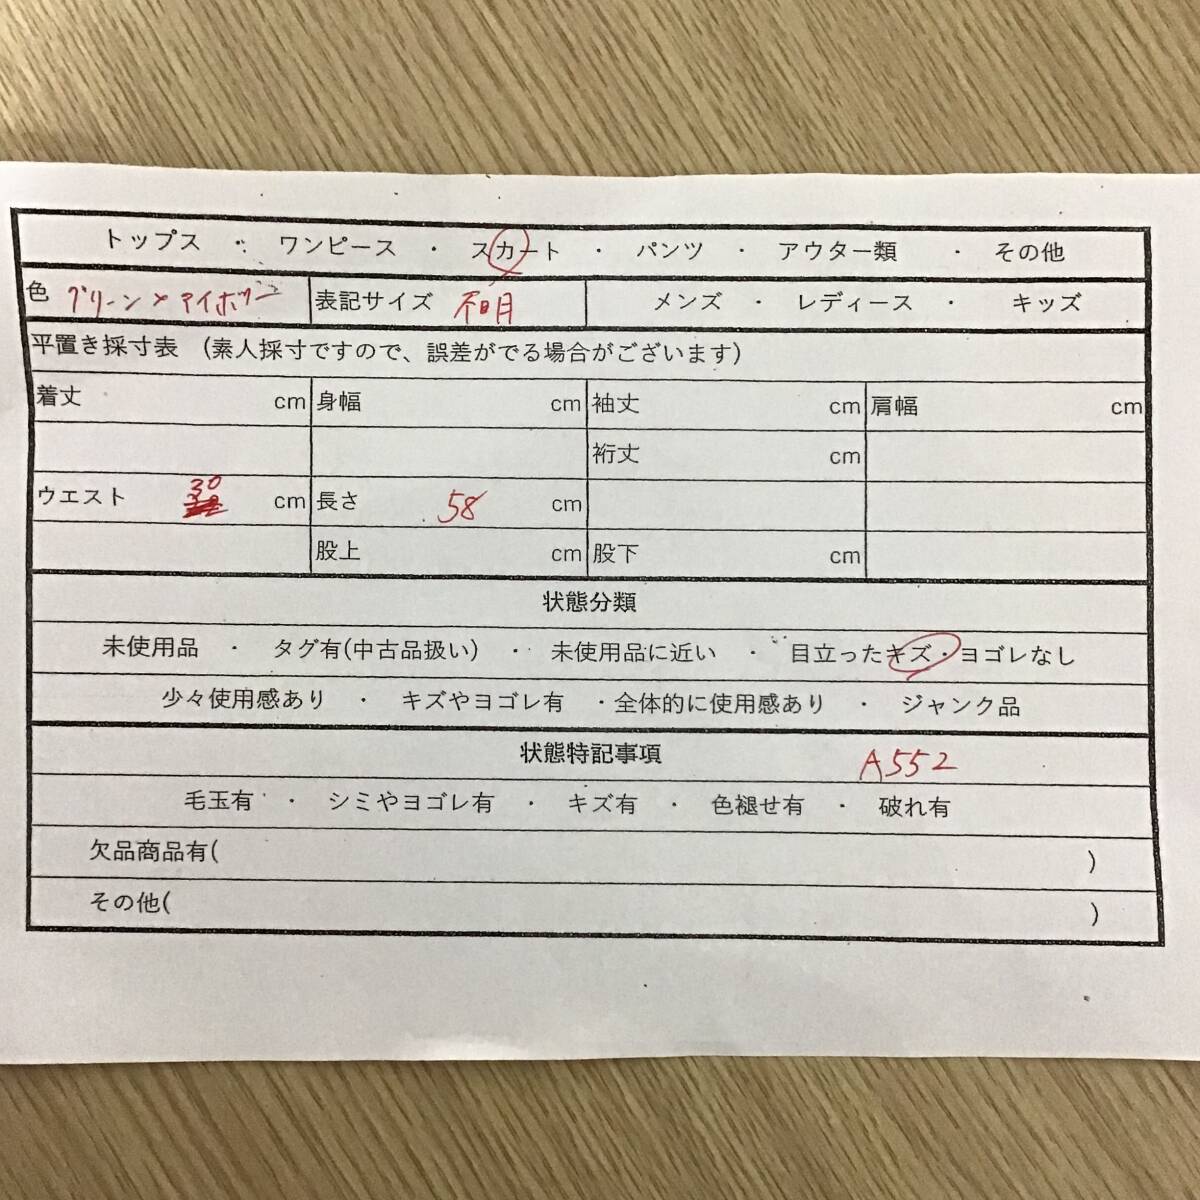 トップス ・ ワンピース ・ スカート ・ パンツ ・ アウター類 ・ その他
色 グリーン×アイボリー 表記サイズ 不明 メンズ ・ レディース ・ キッズ
平置き採寸表 (素人採寸ですので、誤差がでる場合がございます)
着丈 cm 身幅 cm 袖丈 cm 肩幅 cm
裄丈 cm
ウエスト 30 cm 長さ 58 cm
股上 cm 股下 cm
状態分類
未使用品 ・ タグ有(中古品扱い) ・ 未使用品に近い ・ 目立ったキズ・ヨゴレなし
少々使用感あり ・ キズやヨゴレ有 ・全体的に使用感あり ・ ジャンク品
状態特記事項 A552
毛玉有 ・ シミやヨゴレ有 ・ キズ有 ・ 色褪せ有 ・ 破れ有
欠品商品有( )
その他( )